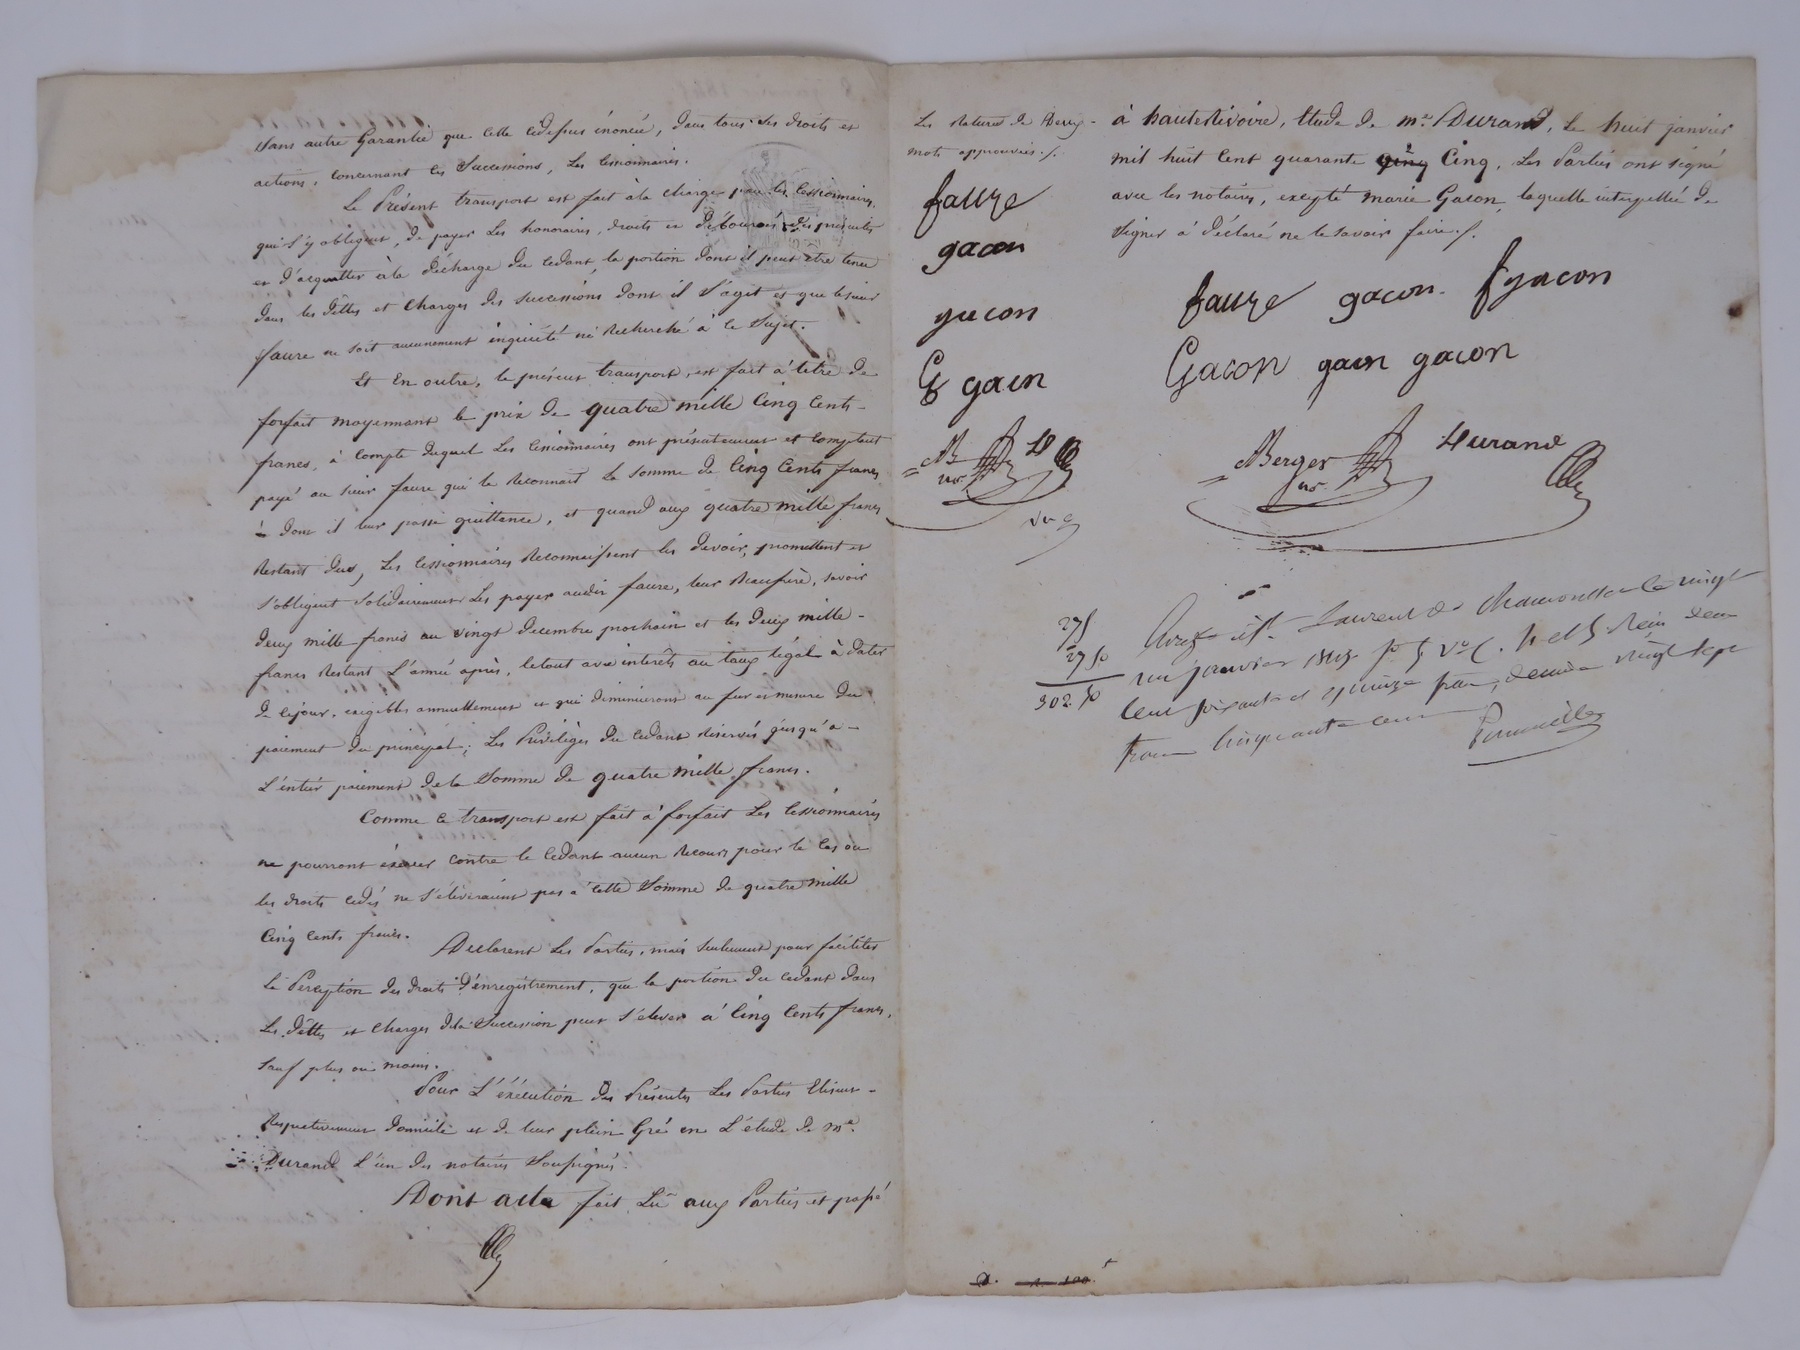 Sans autre Garantie que celle cidessus énoncée, dans tous ses droits et
actions, concernant ces Successions, Les Cessionnaires.
Le Présent transport est fait à la charge par les Cessionnaires,
qui s'y obligent, de payer Les honoraires, droits et débourcés des présentes
et d'acquitter à la décharge du cedant, la portion dont il peut etre tenu
dans les dettes et charges des successions dont il s'agit et que le sieur
faure ne soit aucunement inquiété ni Recherché à ce Sujet.
Et En outre, le présent transport, est fait à titre de
forfait moyennant le prix de quatre mille Cinq Cents
francs, à compte duquel Les Cessionnaires ont présentement et comptant
payé au sieur faure qui le Reconnait La Somme de Cinq Cents francs
dont il leur passe quittance, et quand aux quatre mille francs
Restant dus, Les Cessionnaires Reconnaissent les devoir, promettent et
s'obligent Solidairement Les payer audit faure, leur Beaufrère, savoir
deux mille francs au vingt decembre prochain et les deux mille
francs Restant L'année après, letout avec intérêts au taux légal à dater
de cejour, exigibles annuellement et qui diminueront au fur et mesure du
paiement du principal; Les Privilèges du cedant Réservés jusqu'a
L'entier paiement de la Somme de quatre mille francs.
Comme ce transport est fait à forfait Les Cessionnaires
ne pourront éxercer contre le Cedant aucun Recours pour le cas ou
les droits cedés ne s'éleveraient pas a cette Somme de quatre mille
Cinq Cents francs.
Declarent Les Parties, mais Seulement pour faciliter
La Perception des droits d'énregistrement, que la portion du cedant dans
Les dettes et charges dela Succession peut s'élever à Cinq Cents francs,
Sauf plus ou moins.
Pour L'éxécution des Présentes Les Parties Elisent
Respectivement domicile et de leur plein Gré en L'étude de me
Durand L'un des notaires Soussignés.
Dont acte fait, Lu aux Parties et passé
Les Ratures de Deux
mots approuvées ./.
faure
gacon
gacon
G gacon
MB
D
à hauterivoire, Etude de me Durand, Le huit janvier
mil huit Cent quarante cinq Cinq. Les Parties ont signé
avec les notaires, excepté marie Gacon, laquelle interpellée de
Signer à déclaré ne le savoir faire ./.
faure gacon f gacon
Gacon gacon gacon
Berger Durand
nre
275
27 50
302 50
Enregé à St. Laurent de Chamousset le vingt
un janvier 1845 fo 5 Vo C. Reçu deux
cent soixante et quinze francs, decime vingt sept
francs Cinquante cent